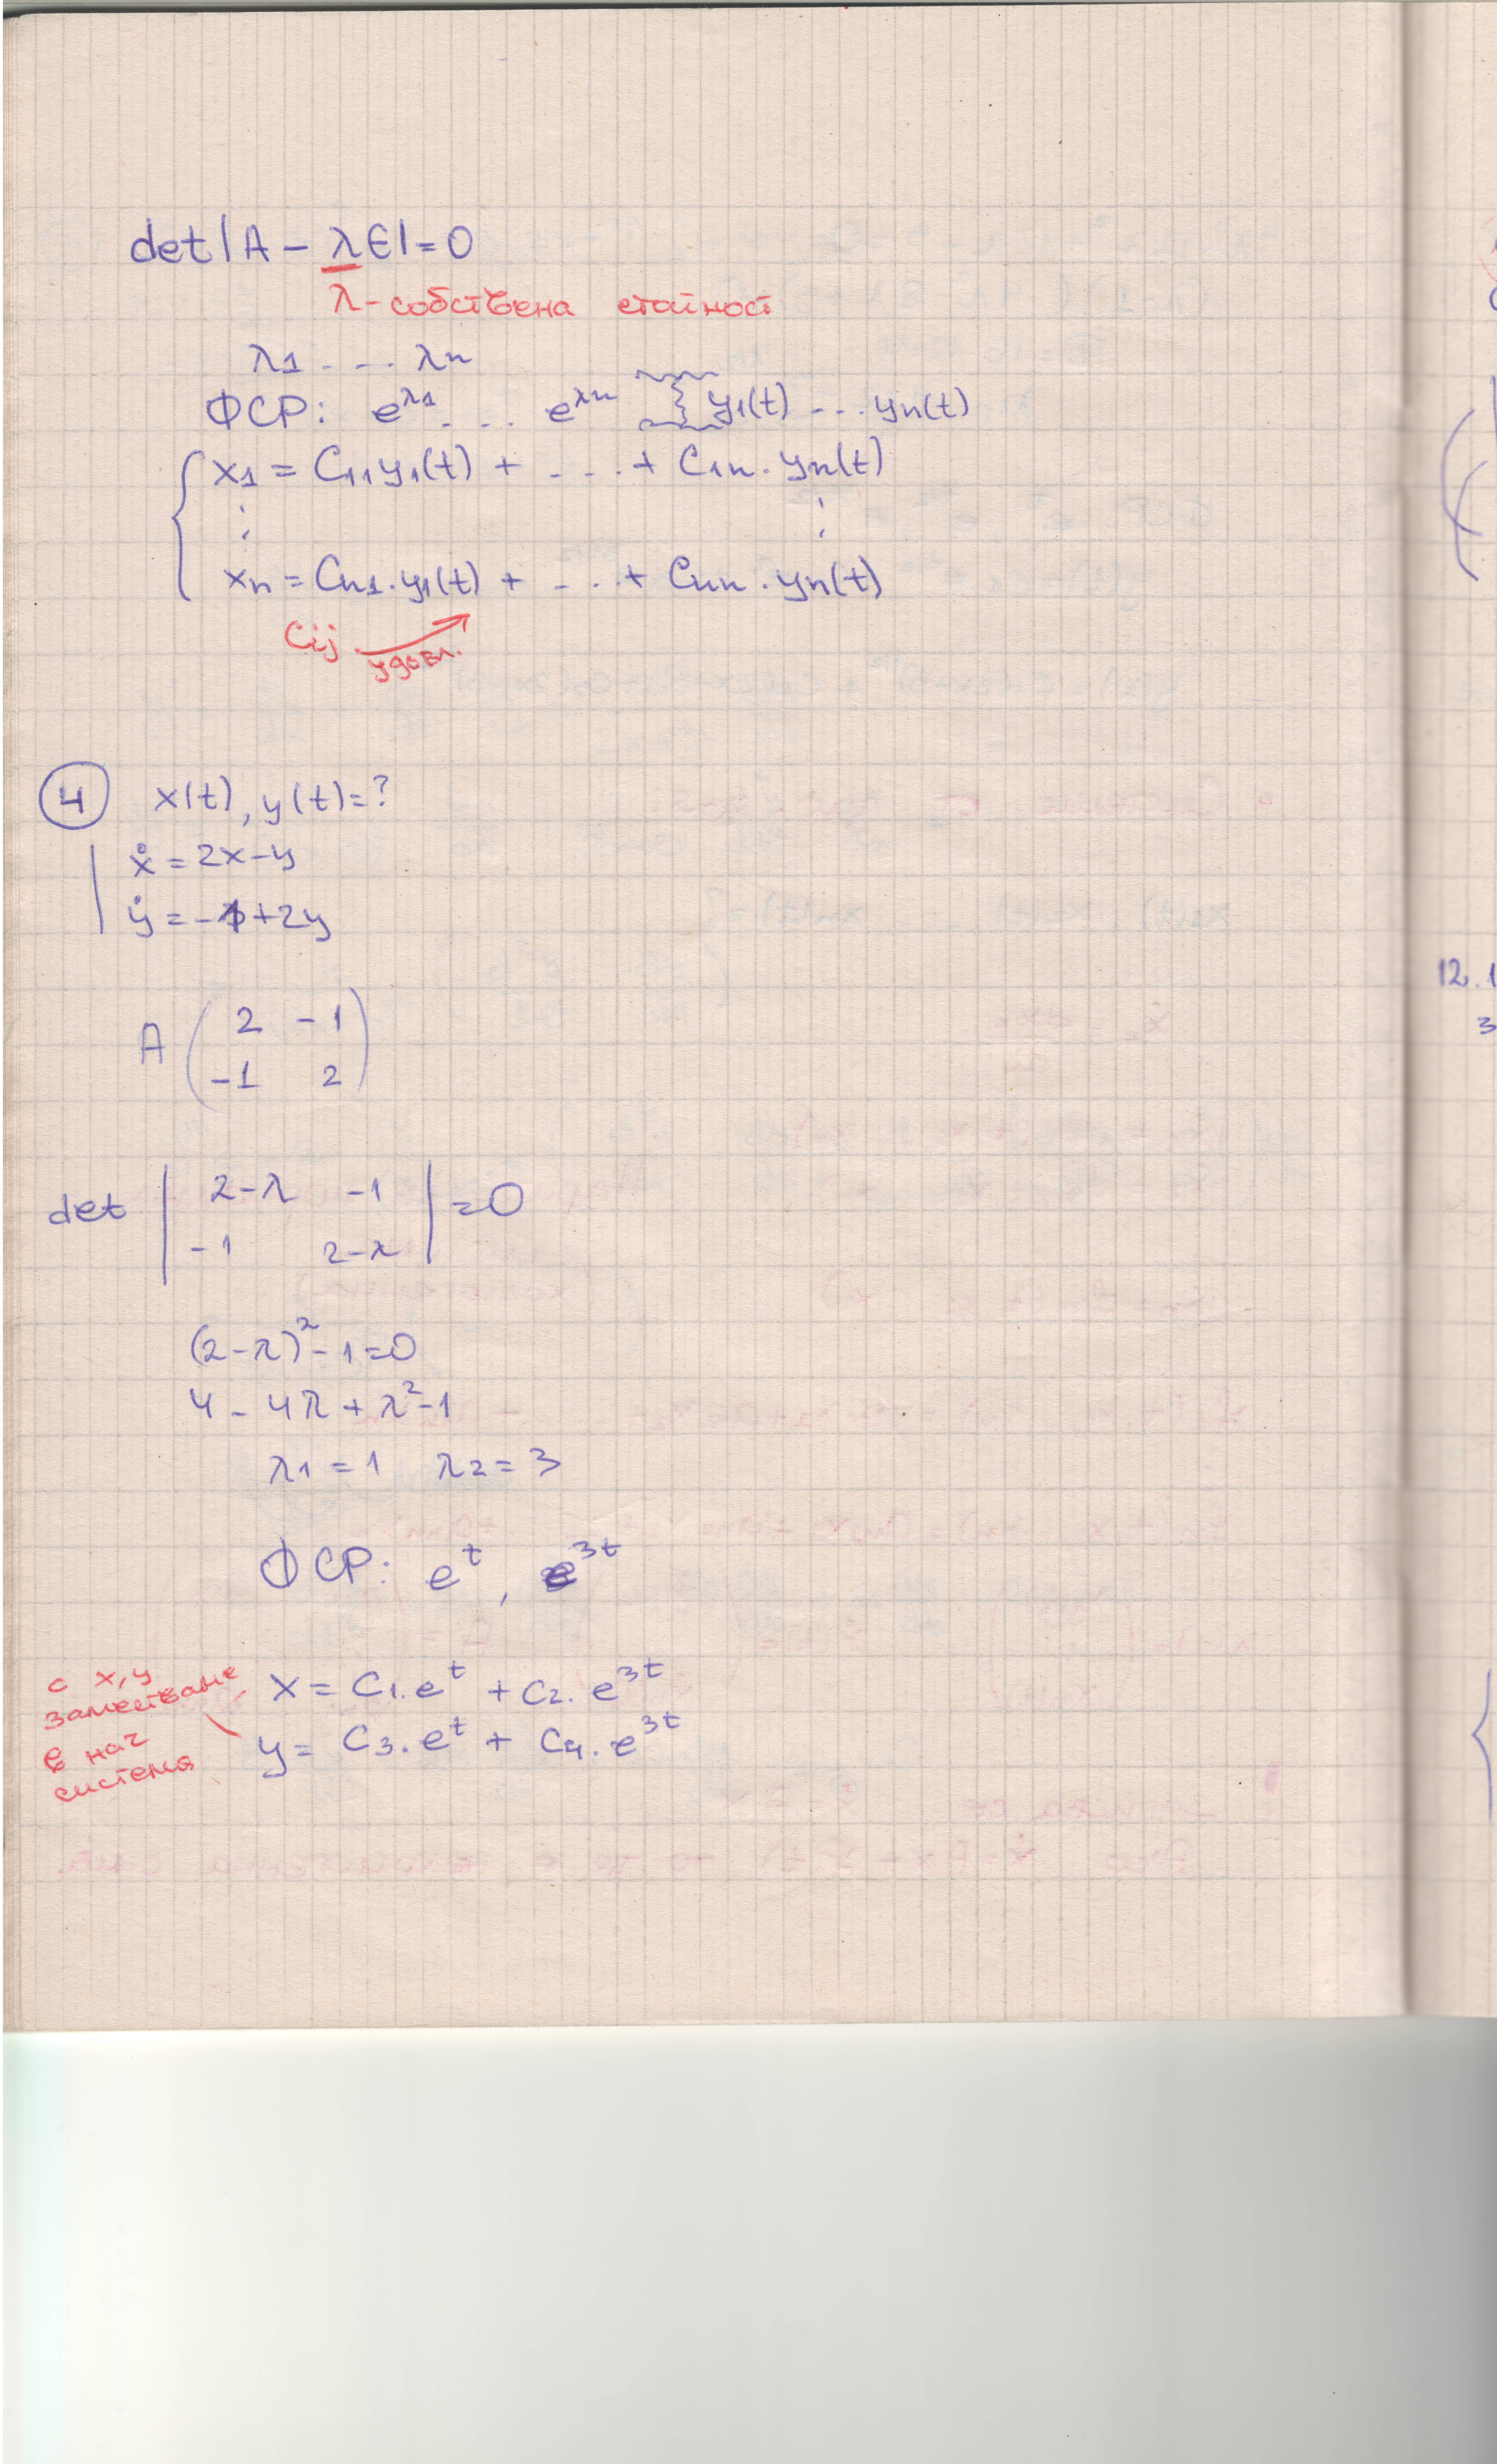 det|A - λE|=0
λ - собствена стойност
λ1 . . . . λn
ФСР: e^λ1 . . . e^λn y1(t) ... yn(t)
x1 = C11y1(t) + . . . . + C1n . yn(t)
⋮ ⋮
xn = Cn1.y1(t) + . . . + Cnn . yn(t)
Cij удовл.
4 x(t), y(t)=?
ẋ = 2x-y
ẏ = - +2y
A ( 2 -1
-1 2 )
det | 2-λ -1 | =0
-1 2-λ
(2-λ)²-1=0
4 - 4λ + λ²-1
λ1 = 1 λ2 = 3
ФСР: e^t , e^3t
с x,y
заместваме
в нач
система
x = C1.e^t + C2. e^3t
y = C3.e^t + C4.e^3t
12. 1
3